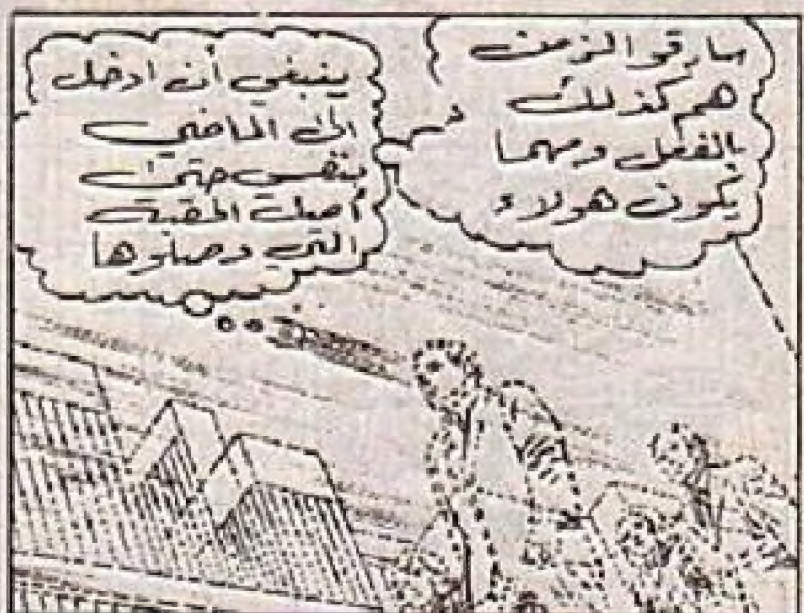 سارقو الزمن
هم كذلك
بالفعل ومهما
يكون هولاء
ينبغي أن ادخل
الى الماضي
بنفسي حتى
أصل الحقبة
التي وصلوها